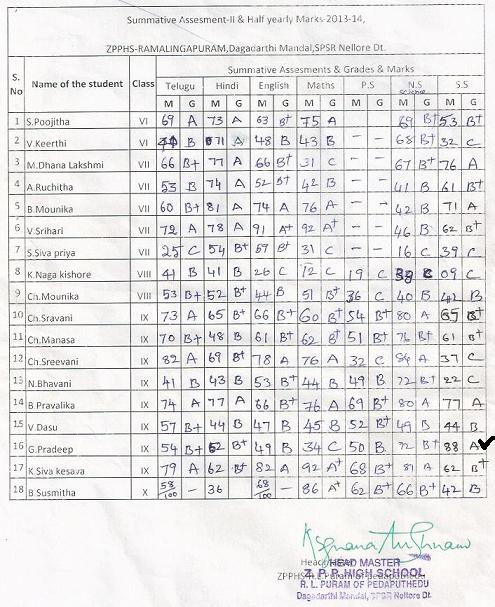 Summative Assesment-II & Half yearly Marks-2013-14,
ZPPHS-RAMALINGAPURAM,Dagadarthi Mandal,SPSR Nellore Dt.
Summative Assesments & Grades & Marks
S. No Name of the student Class Telugu Hindi English Maths P.S N.S science S.S
M G M G M G M G M G M G M G
1 S.Poojitha VI 69 A 73 A 63 B+ 75 A 69 B+ 53 B+
2 V.Keerthi VI B 71 A 48 B 43 B - - 68 B+ 32 C
3 M.Dhana Lakshmi VII 66 B+ 77 A 66 B+ 31 C - - 67 B+ 76 A
4 A.Ruchitha VII 53 B 74 A 52 B+ 42 B - - 41 B 61 B+
5 B.Mounika VII 60 B+ 81 A 74 A 76 A - - 42 B 71 A
6 V.Srihari VII 72 A 78 A 91 A+ 92 A+ - - 46 B 62 B+
7 S.Siva priya VII 25 C 54 B+ 57 B+ 31 C - - 16 C 39 C
8 K.Naga kishore VIII 41 B 41 B 26 C 12 C 19 C C 09 C
9 Ch.Mounika VIII 53 B+ 52 B+ 44 B 51 B+ 36 C 40 B 42 B
10 Ch.Sravani IX 73 A 65 B+ 66 B+ 60 B+ 54 B+ 80 A 65 B+
11 Ch.Manasa IX 70 B+ 48 B 61 B+ 62 B+ 51 B+ 76 B+ 61 B+
12 Ch.Sreevani IX 82 A 69 B+ 78 A 76 A 32 C 84 A 37 C
13 N.Bhavani IX 41 B 43 B 53 B+ 44 B 49 B 72 B+ 22 C
14 B.Pravalika IX 74 A 77 A 66 B+ 76 A 69 B+ 80 A 77 A
15 V.Dasu IX 57 B+ 44 B 47 B 45 B 52 B+ 49 B 44 B
16 G.Pradeep IX 54 B+ 52 B+ 49 B 34 C 50 B 72 B+ 88 A
17 K.Siva kesava IX 79 A 62 B+ 82 A 92 A+ 68 B+ 81 A 62 B+
18 B Susmitha X 58/100 - 36 68/100 - 86 A+ 62 B+ 66 B+ 42 B
HEAD MASTER
Z. P. P. HIGH SCHOOL
ZPPHS
R. L. PURAM OF PEDAPUTHEDU
Dagadarthi Mandal, SPSR Nellore Dt.